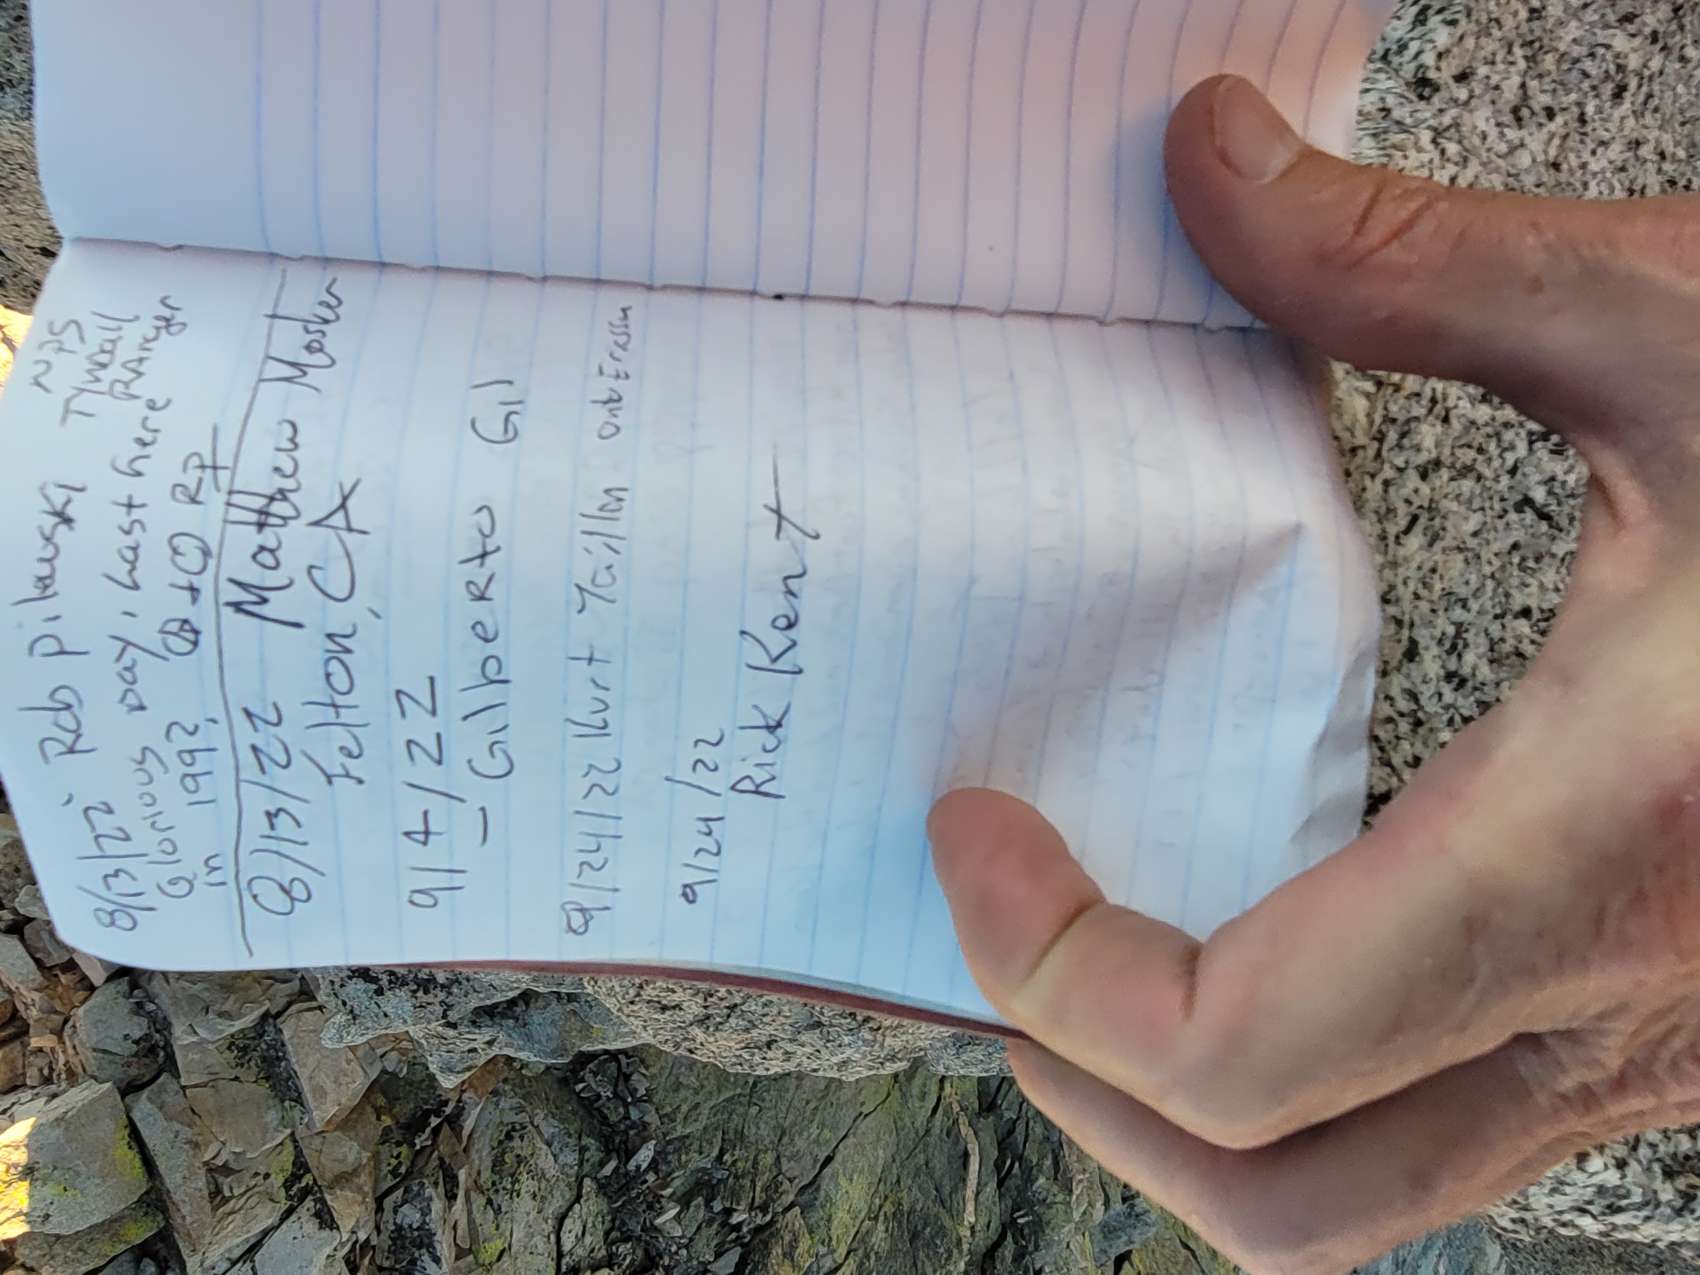 8/13/22 Rob Pilewski NPS
Glorious Day, Last here Tyndall
in 1992. RP RAnger
8/13/22 Matthew Mosher
Felton, CA
9/4/22
- GilbeRto Gil
9/24/22 Kurt
9/24/22
Rick Kent